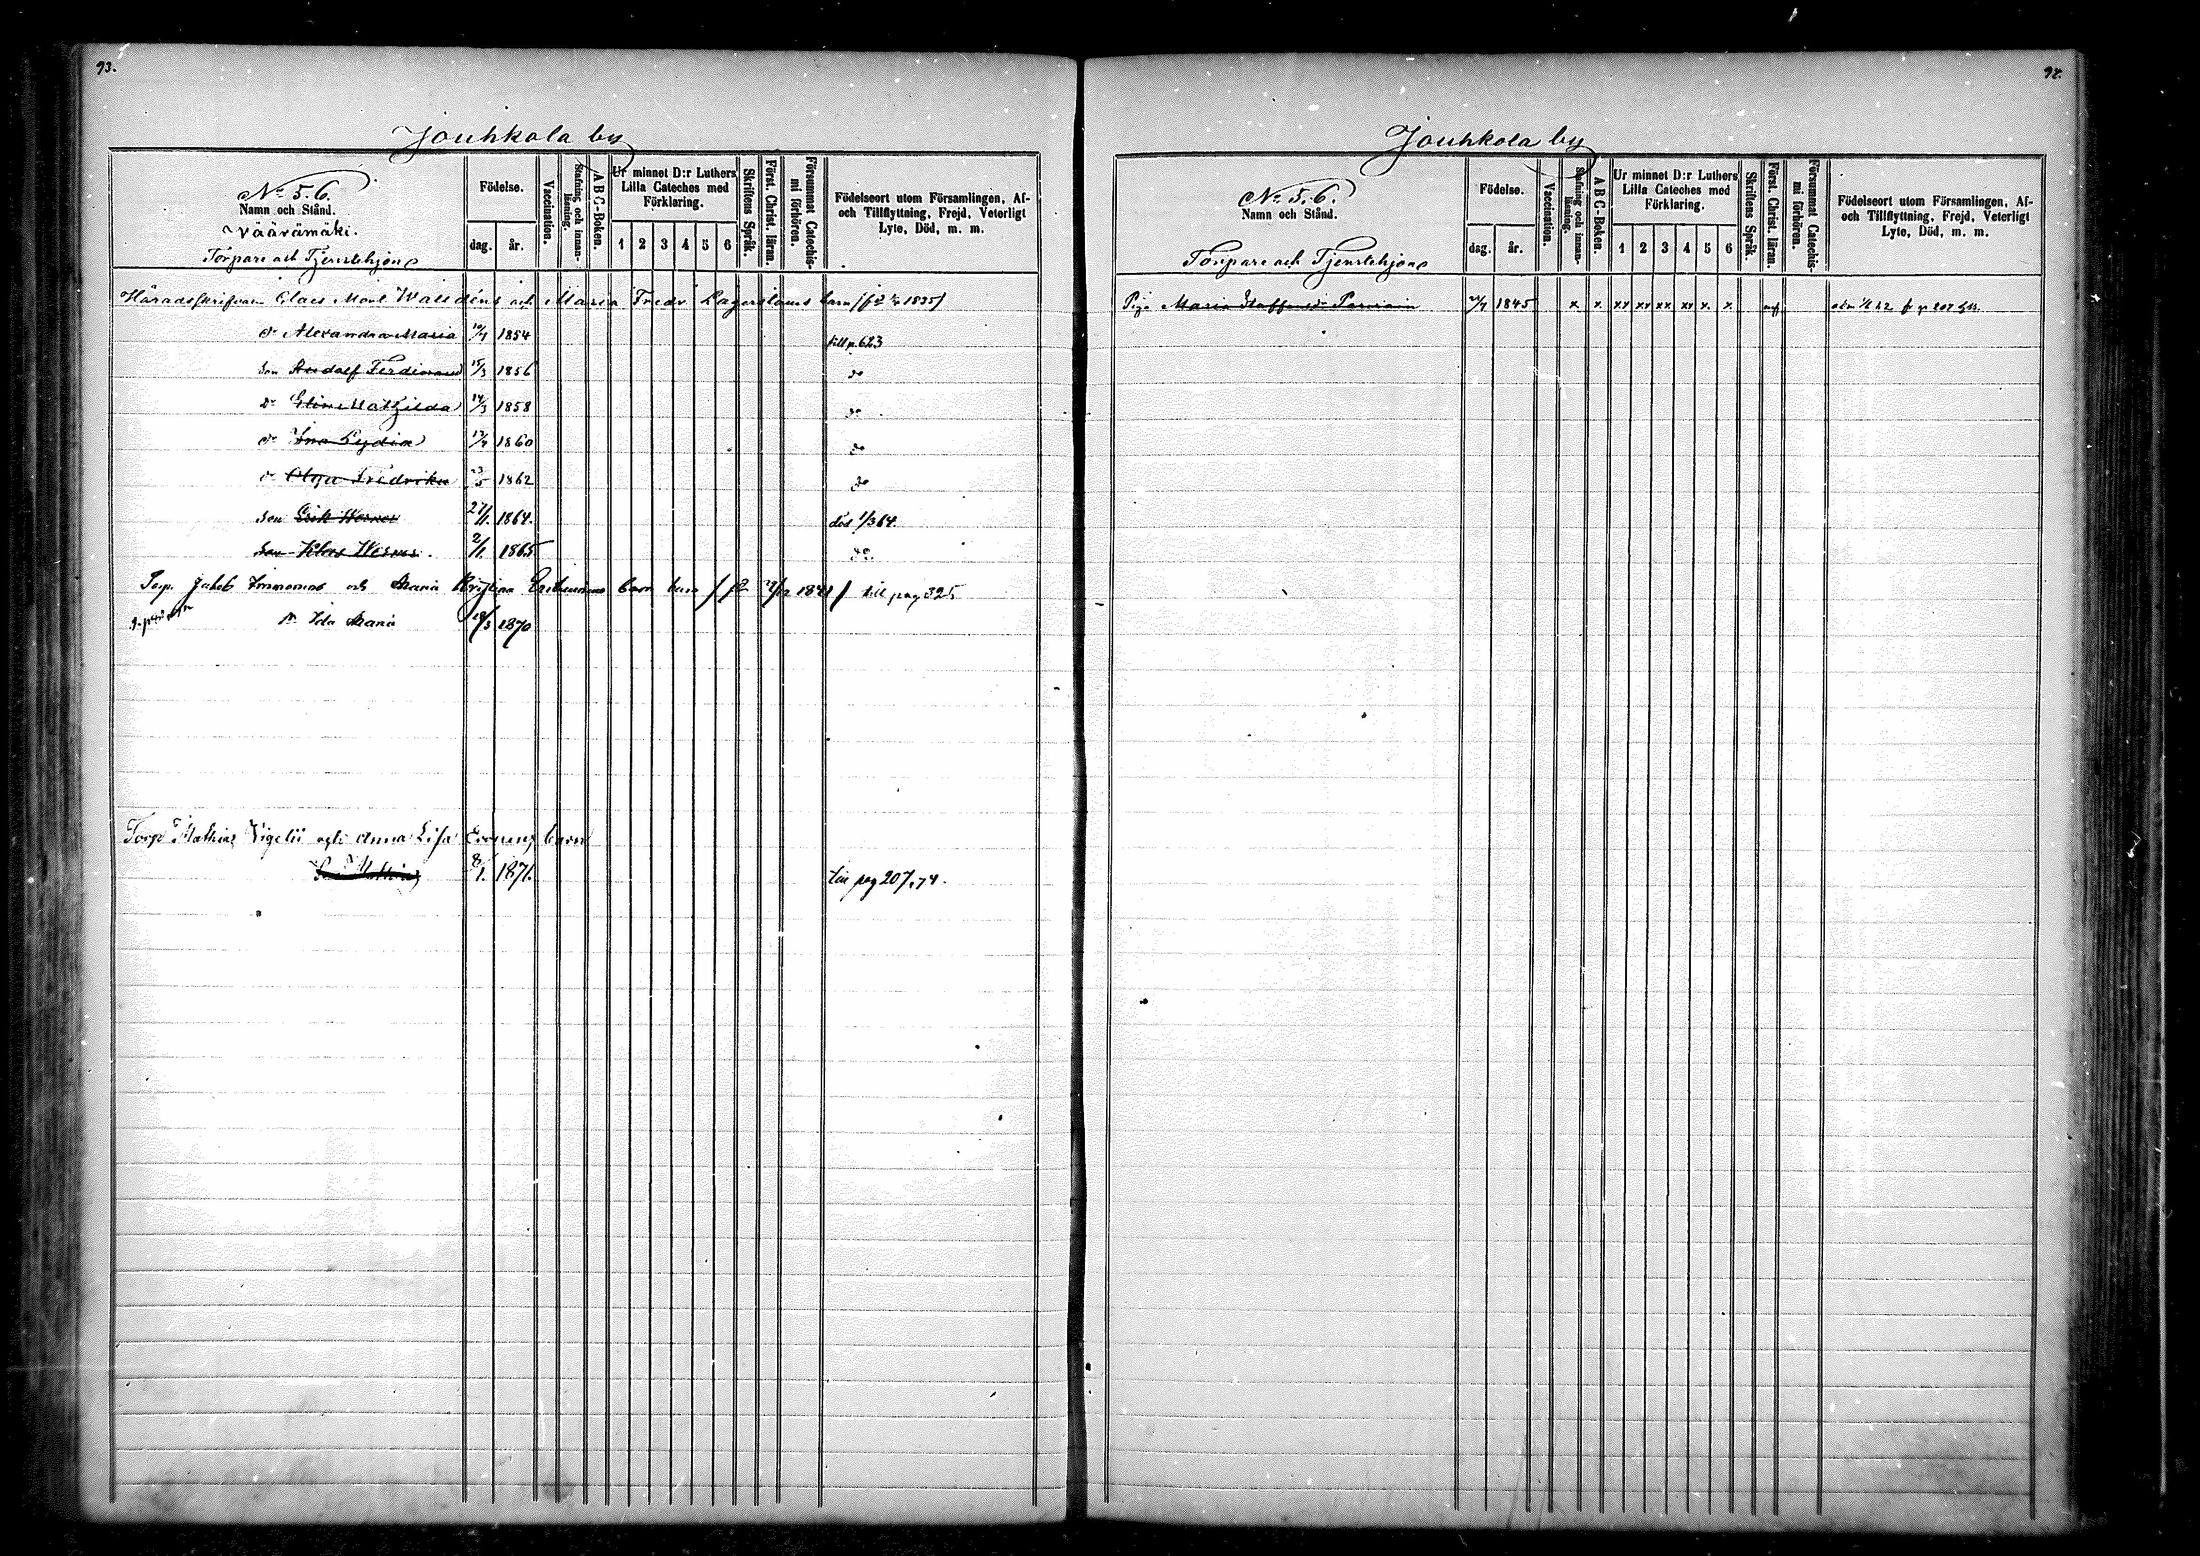 93.
Jouhkola by
No 5. 6.
Namn och Stånd.
Väärämäki.
Torpare och Tjenstehjon
Födelse.
dag. år.
Vaccination.
Stafning och innanläsning.
A B C-Boken.
Ur minnet D:r Luthers Lilla Cateches med Förklaring.
1 2 3 4 5 6
Skriftens Språk.
Först. Christ. läran.
Försummat Catechismi förhören.
Födelseort utom Församlingen, Af- och Tillflyttning, Frejd, Veterligt Lyte, Död, m. m.
Häradsskrifvaren Claes Walldéns och Maria Fredr. Lagerstams barn 1835)
dr Alexandra Maria 1854 till p. 623
Son Ferdinand 15/3 1856 do
dr Mathilda 14/3 1858 do
dr Ina Lydia 1860 do
dr Olga Fredrika 23/5 1862 do
Son Erik Werner 27/1. 1864. död 1/3 64.
Son Klas Werner. 2/1. 1865 do.
Jakob Immonens och Maria Kristina barn till pag 325
dr Ida Maria 1870
Torp Mathias Vigelii och Anna Lisa barn
Son Mathias 8/1. 1871. till pag 207, 74.
94.
Jouhkola by
No 5. 6.
Namn och Stånd.
Torpare och Tjenstehjon
Födelse.
dag. år.
Vaccination.
Stafning och innanläsning.
A B C-Boken.
Ur minnet D:r Luthers Lilla Cateches med Förklaring.
1 2 3 4 5 6
Skriftens Språk.
Först. Christ. läran.
Försummat Catechismi förhören.
Födelseort utom Församlingen, Af- och Tillflyttning, Frejd, Veterligt Lyte, Död, m. m.
Piga Maria Staffansdr Parviain 1845 x x xx xx xx xx x. x.